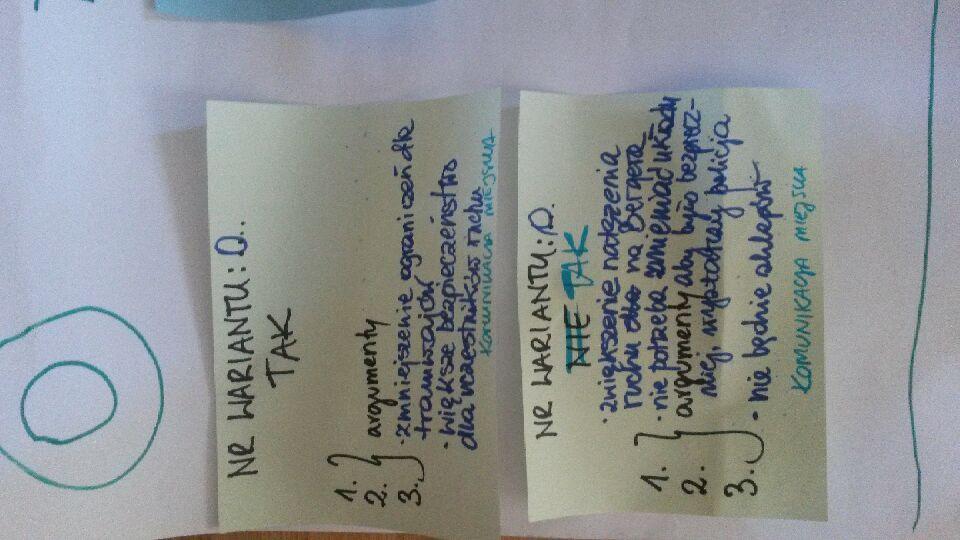 NR WARIANTU: D..
TAK
1. } argumenty
2. · zmniejszenie ograniczeń dla
3. tramwajów
· większe bezpieczeństwo
dla uczestników ruchu
KOMUNIKACJA MIEJSKA
NR WARIANTU: D.
NIE TAK
· zwiększenie natężenia
ruchu dla na Bergera
· nie potrzeba zmieniać układy
1. } argumenty aby było bezpiecz-
2. niej, wystarczy policja
3. · nie będzie ślepotr
KOMUNIKACJA MIEJSKA